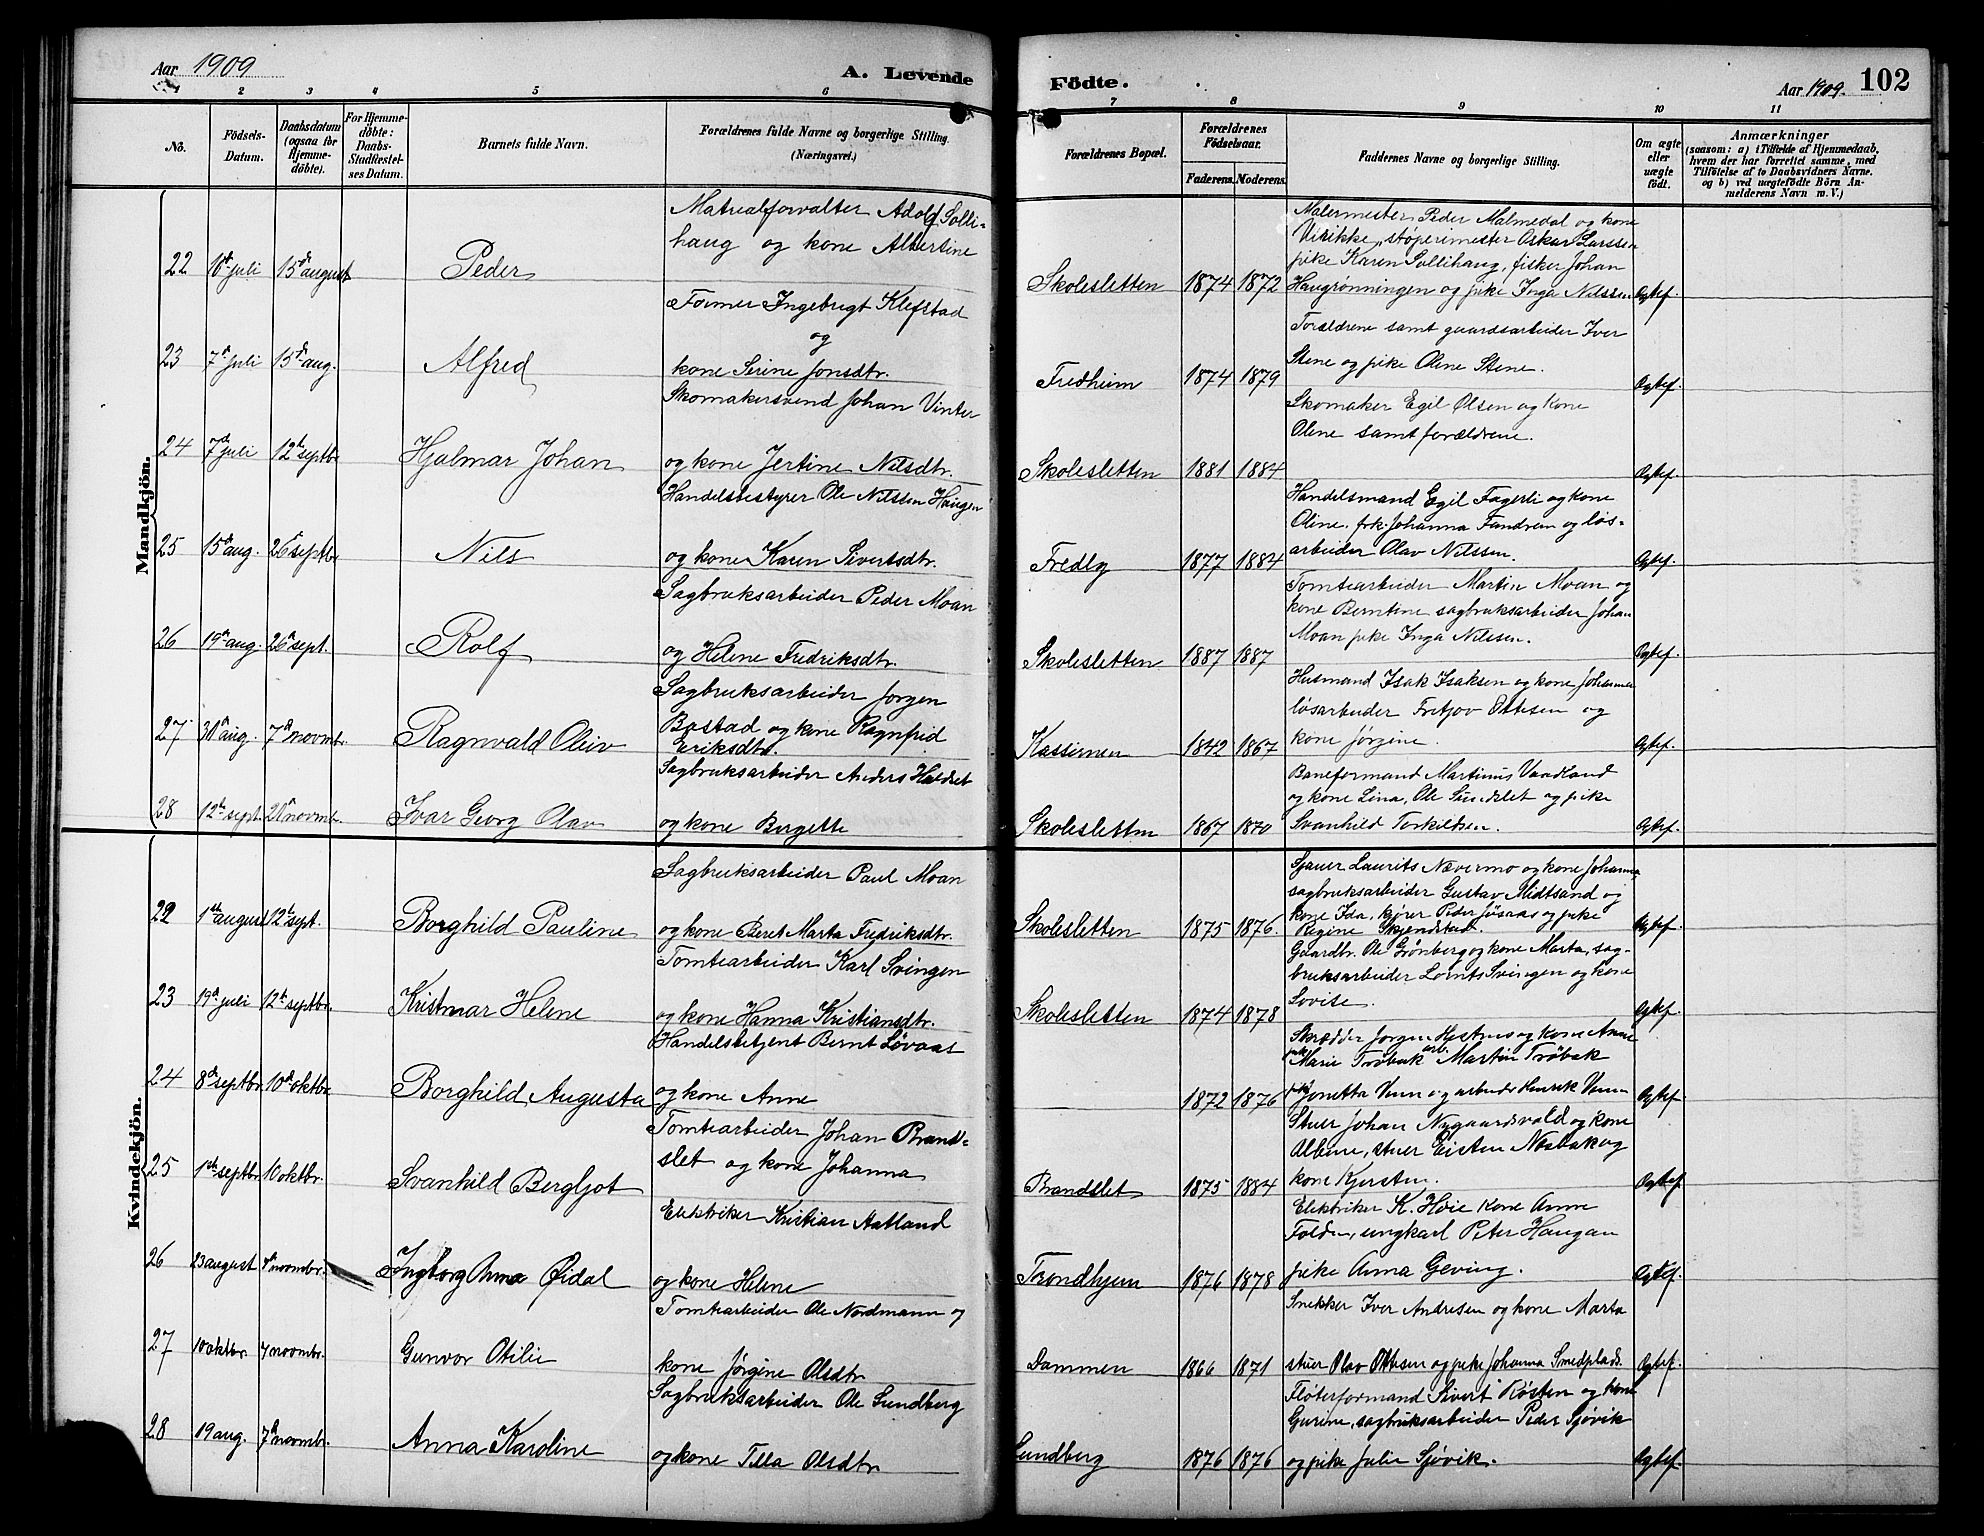 Aar 1909
A. Levende
Födte.
Aar 1909. 102
1 2 3 4 5 6 7 8 9 10 11
No.
Födsels-
Datum.
Daabsdatum
(ogsaa for
Hjemme-
døbte).
For Hjemme-
døbte:
Daabs-
Stadfæstel-
ses Datum.
Barnets fulde Navn.
Forældrenes fulde Navne og borgerlige Stilling.
(Næringsvei.)
Forældrenes Bopæl.
Forældrenes
Födselsaar.
Faderens. Moderens.
Faddernes Navne og borgerlige Stilling.
Om ægte
eller
uægte
født.
Anmærkninger
(saasom: a) i Tilfælde af Hjemmedaab,
hvem der har forrettet samme, med
Tilföielse af to Daabsvidners Navne.
og b) ved uægtefödte Börn An-
melderens Navn m. V.)
Mandkjön.
Matrealforvalter Adolf Solli-
haug og kone Albertine
22 10de juli 15de august Peder
Skolesletten 1874 1872
Malermester Peder Malmedal og kone
støperimester Oskar Larssen
pike Karen Sollihaug, fisker Johan
Haugrønningen og pike Inga Nilssen Ægtef.
Former Ingebrigt Klefstad
og
23 7de juli 15de aug. Alfred kone Serine Jonsdtr.
Fredheim 1874 1879
Forældrene samt gaardsarbeider Iver
Stene og pike Oline Stene. Ægtef.
Skomakersvend Johan Vinter
24 7de juli 12te septbr Hjalmar Johan og kone Jertine Nilsdtr.
Skolesletten 1881 1884
Skomaker Egil Olsen og kone
Oline samt forældrene. Ægtef.
Handelsbestyrer Ole Nilssen Haugen
25 15de aug. 26de septbr Nils og kone Karen Sivertsdtr.
Fredly 1877 1884
Handelsmand Egil Fagerli og kone
Oline. frk. Johanna Fandrem og løs-
arbeider Olav Nilssen. Ægtef.
Sagbruksarbeider Peder Moan
26 19de aug. 26de sept. Rolf og Helene Fredriksdtr.
Skolesletten 1887 1887
Tomtearbeider Martin Moan og
kone Berntine sagbruksarbeider Johan
Moan pike Inga Nilssen. Ægtef.
Sagbruksarbeider Jørgen
Bostad og kone Ragnfrid
Eriksdtr.
27 31te aug. 7de novmbr. Ragnvald Oliv
Kassirnen 1842 1867
Husmand Isak Isaksen og kone Johanna
løsarbeider Fritjov Ottesen og
kone Jørgine. Ægtef.
Sagbruksarbeider Anders Haldset
28 12te sept. 21de novmbr. Ivar Georg Olav og kone Bergette
Skolesletten 1867 1870
Baneformand Martinus Vaadland
og kone Lina, Ole Sundslet og pike
Svanhild Torkildsen. Ægtef.
Kvindekjön.
Sagbruksarbeider Paul Moan
22 1ste august 12te sept. Borghild Pauline og kone Beret Marta Fredriksdtr.
Skolesletten 1875 1876.
Sjauer Laurits Nævermo og kone Johanna
sagbruksarbeider Gustav Midtsand og
kone Ida, kjører Peder Jøsaas og pike
Regine Skjenstad. Ægtef.
Tomtearbeider Karl Svingen
23 19de juli 12te septbr. Kristmar Helene og kone Hanna Kristiansdtr.
Skolesletten 1874 1878
Gaardbr. Ole Grønberg og kone Marta, sag-
bruksarbeider Lornts Svingen og kone
Lovise. Ægtef.
Handelsbetjent Bernt Løvaas
24 8de septbr. 10de oktbr. Borghild Augusta og kone Anne
1872 1876
Skrædder Jørgen og kone Anne
pike Marie Trøbak arb. Martin Trøbak
pike Jonetta Venn og arbeider Henrik Venn Ægtef.
Tomtearbeider Johan Brand-
slet og kone Johanna
25 1ste septbr. 10 oktbr. Svanhild Bergljot
Brandslet 1875 1884
Stuer Johan Nygaardsvald og kone
Albine, stuer Eisten Nesbak og
kone Kjersten. Ægtef.
Elektriker Kristian Aatland
26 23 august 7de novmbr. Ingborg Anna Ødal og kone Helene
Trondhjem 1876 1878
Elektriker K. Høie kone Anne
Folden, ungkarl Peter Haugan
pike Anna Geving. Ægtef.
Tomtearbeider Ole Nordmann og
27 10 oktbr 7 novmbr. Gunvor Otilie kone Jørgine Olsdtr
Dammen 1866 1871
Snekker Iver Andresen og kone Marta
stuer Olav Ottesen og pike Johanna Smedplads. Ægtef.
Sagbruksarbeider Ole Sundberg
28 19 aug. 7de novmbr. Anna Karoline og kone Tilla Olsdtr
Sundberg 1876 1876
Fløterformand Sivert Røsten og kone
Gurine, sagbruksarbeider Peder Sjøvik
og pike Julie Sjøvik. Ægtef.